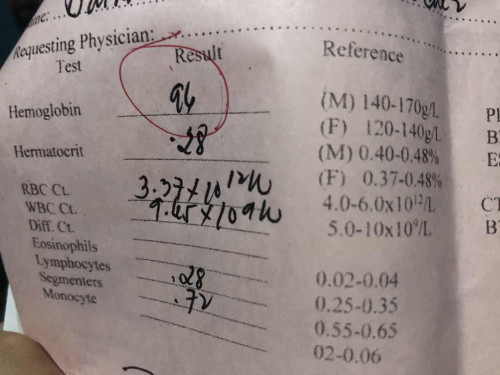 Requesting Physician:
Test Result Reference
Hemoglobin 94 (M) 140-170g/L
(F) 120-140g/L
Hermatocrit .28 (M) 0.40-0.48%
(F) 0.37-0.48%
RBC Ct. 3.37x10 12/L 4.0-6.0x10¹²/L
WBC Ct. 9.45x10 9/L 5.0-10x10⁹/L
Diff. Ct.
Eosinophils 0.02-0.04
Lymphocytes .28 0.25-0.35
Segmenters .72 0.55-0.65
Monocyte 02-0.06